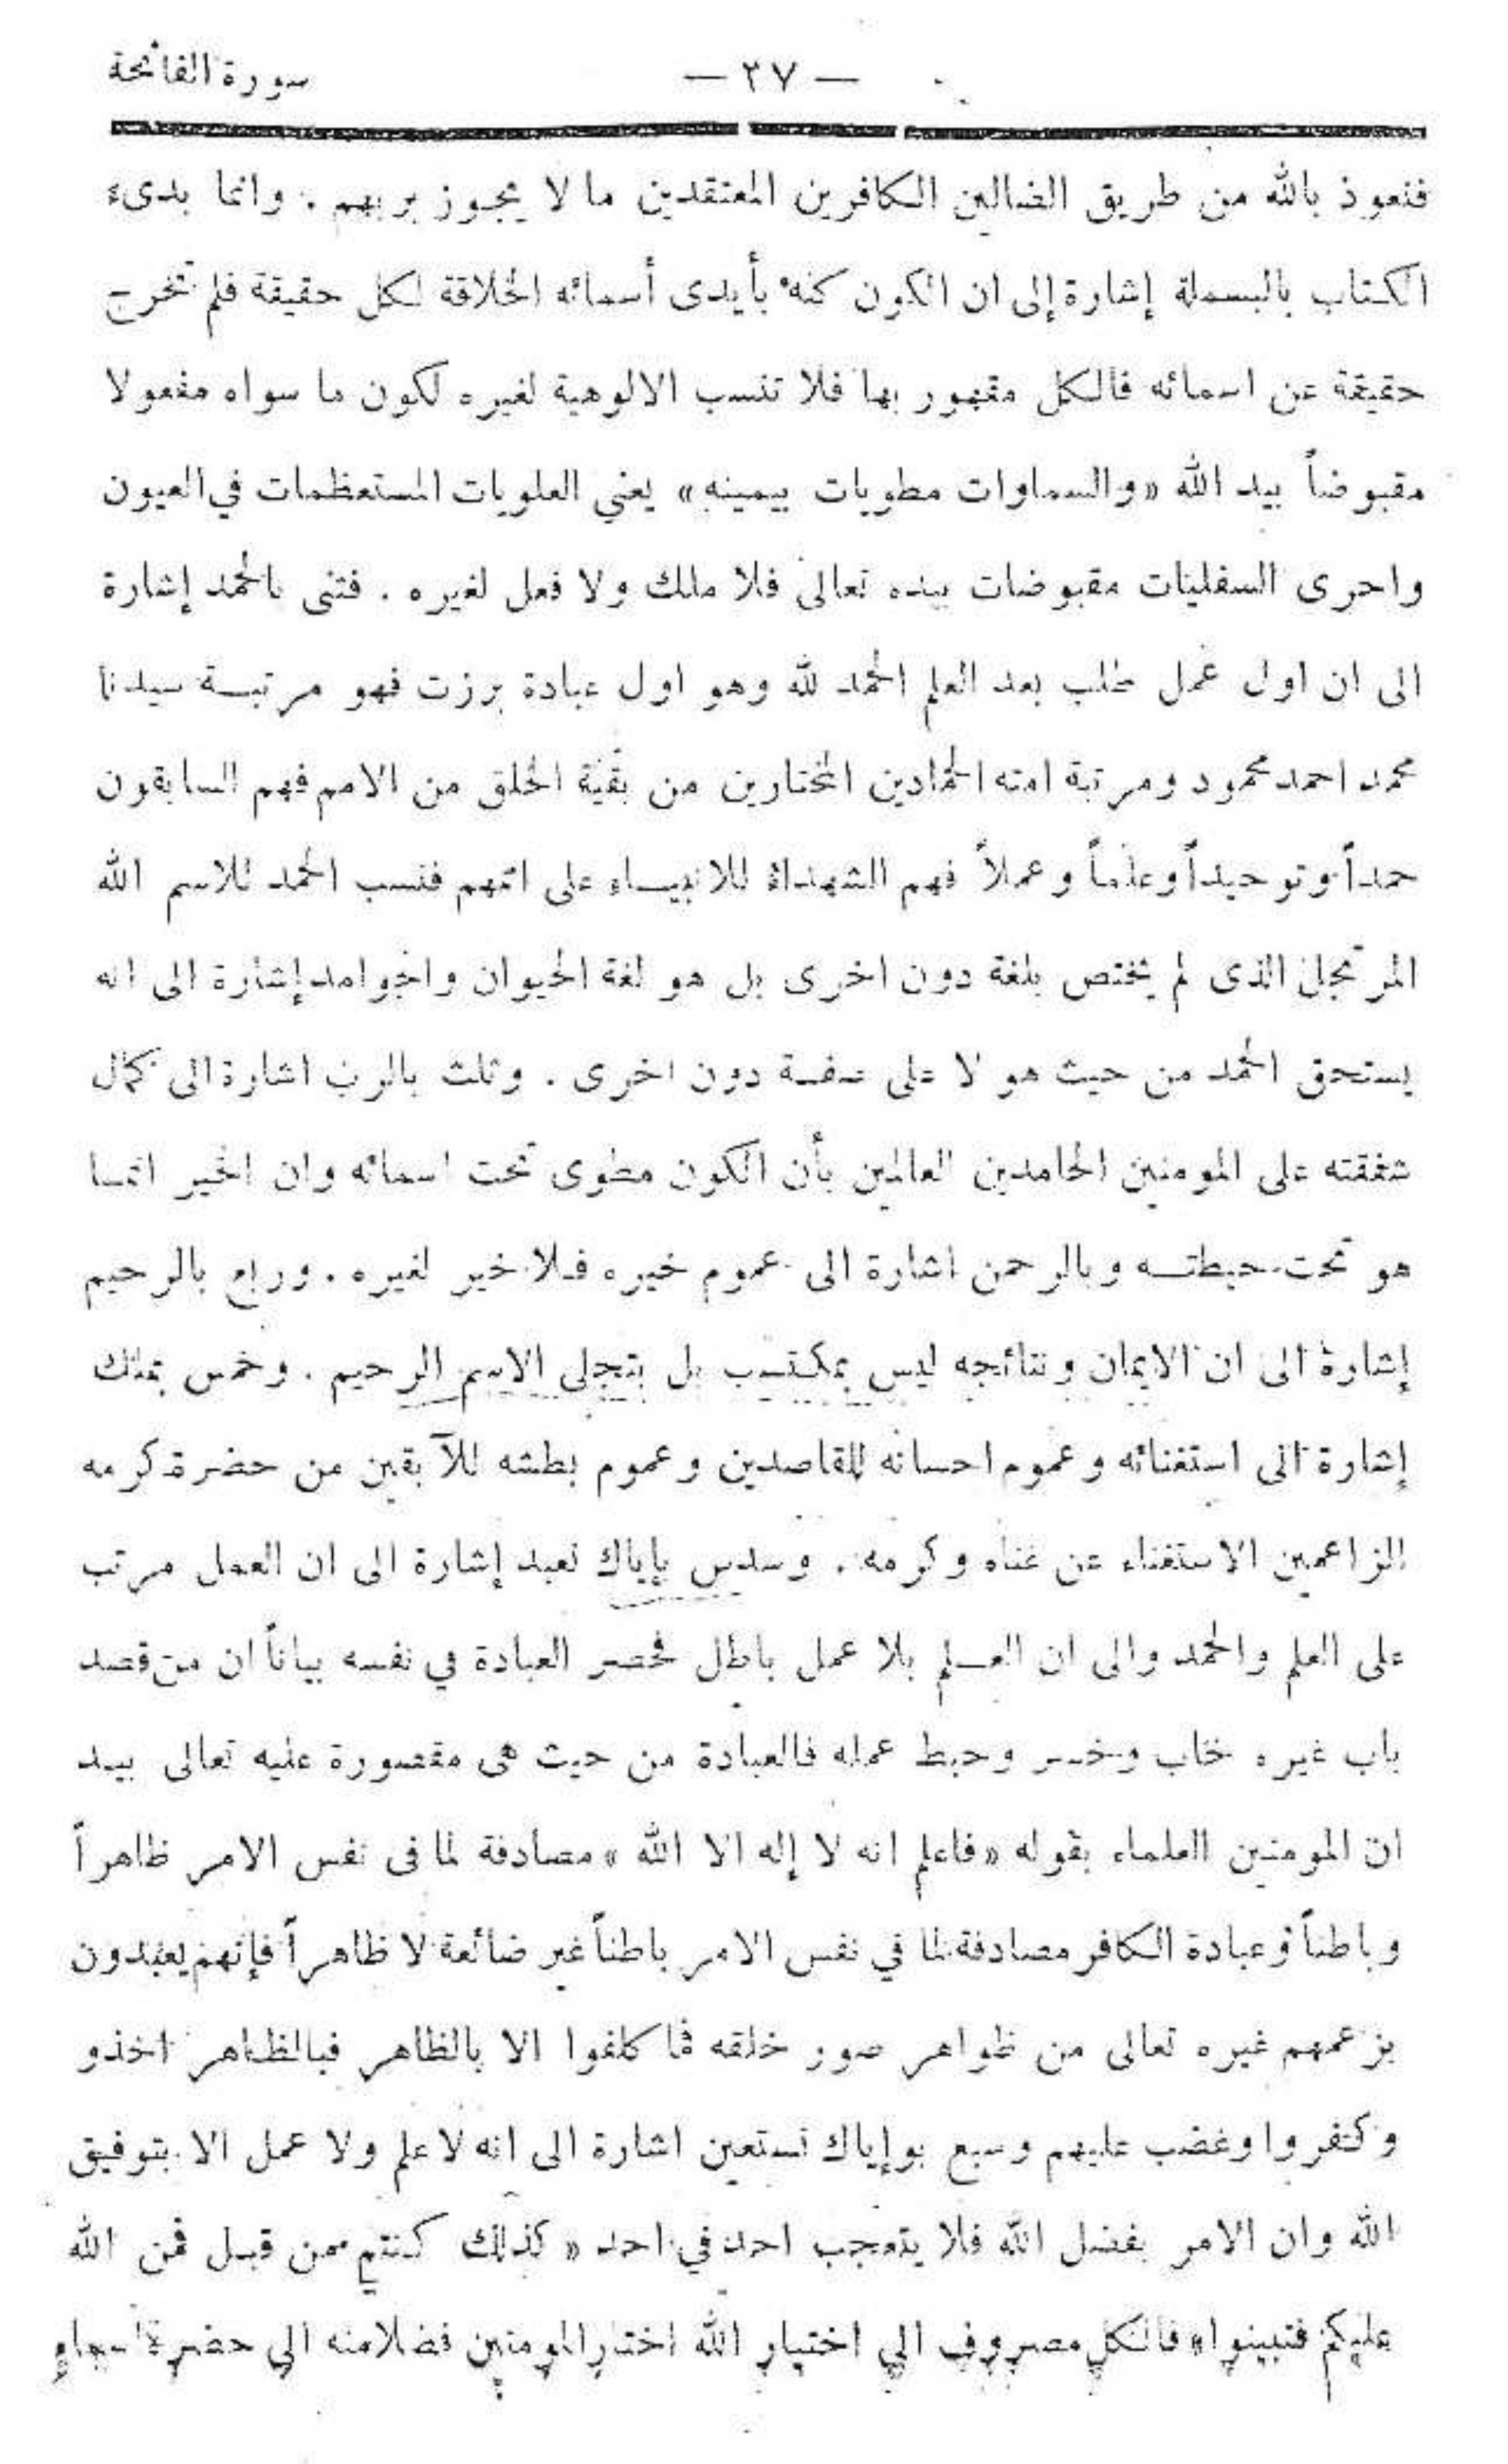 سورة الفاتحة
— ٣٧ —
فنعوذ بالله من طريق الضالين الكافرين المعتقدين ما لا يجوز بربهم . وانما بدىء
الكتاب بالبسملة إشارة إلى ان الكون كله بأيدى أسمائه الخلاقة لكل حقيقة فلم تخرج
حقيقة عن اسمائه فالكل مقهور بها فلا تنسب الالوهية لغيره لكون ما سواه مفعولا
مقبوضاً بيد الله «والسماوات مطويات بيمينه» يعني العلويات المستعظمات في العيون
واحرى السفليات مقبوضات بيده تعالى فلا ملك ولا فعل لغيره . فثنى بالحمد إشارة
الى ان اول عمل طلب بعد العلم الحمد لله وهو اول عبادة برزت فهو مرتبة سيدنا
محمد احمد محمود ومرتبة امته الحمادين المختارين من بقية الخلق من الامم فهم السابقون
حمداً وتوحيداً وعلماً وعملاً فهم الشهداء للانبياء على اممهم فنسب الحمد للاسم الله
المرتجل الذى لم يختص بلغة دون اخرى بل هو لغة الحيوان والجوامد إشارة الى انه
يستحق الحمد من حيث هو لا على صفة دون اخرى . وثلث بالرب اشارة الى كمال
شفقته على المومنين الحامدين العالمين بأن الكون مطوى تحت اسمائه وان الخير انما
هو تحت حيطته وبالرحمن اشارة الى عموم خيره فلا خير لغيره . وربع بالرحيم
إشارة الى ان الايمان ونتائجه ليس بمكتسب بل بتجلى الاسم الرحيم . وخمس بملك
إشارة الى استغنائه وعموم احسانه للقاصدين وعموم بطشه للآبقين من حضرة كرمه
الزاعمين الاستغناء عن غناه وكرمه . وسدس بإياك نعبد إشارة الى ان العمل مرتب
على العلم والحمد والى ان العلم بلا عمل باطل فحصر العبادة في نفسه بياناً ان من قصد
باب غيره خاب وخسر وحبط عمله فالعبادة من حيث هى مقصورة عليه تعالى بيد
ان المومنين العلماء بقوله «فاعلم انه لا إله الا الله» مصادفة لما فى نفس الامر ظاهراً
وباطناً وعبادة الكافر مصادفة لما في نفس الامر باطناً غير ضائعة لا ظاهراً فإنهم يعبدون
بزعمهم غيره تعالى من ظواهر صور خلقه فما كلفوا الا بالظاهر فبالظاهر اخذو
وكفروا وغضب عليهم وسبع بوإياك نستعين اشارة الى انه لا علم ولا عمل الا بتوفيق
الله وان الامر بفضل الله فلا يتعجب احد في احد «كذلك كنتم من قبل فمن الله
عليكم فتبينوا» فالكل مصروف الي اختيار الله اختار المومنين فضلا منه الي حضرة